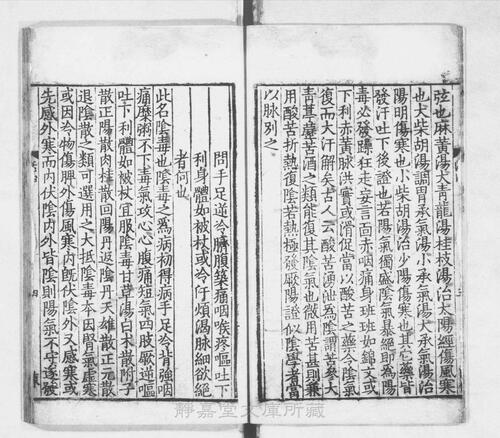 弦也麻黄湯大青龍湯桂枝湯治太陽經傷風寒
也大柴胡湯調胃承氣湯小承氣湯大承氣湯治
陽明傷寒也小柴胡湯治少陽傷寒也其它藥皆
發汗吐下後證也若陽氣獨盛陰氣暴絕即為陽
毒必發躁狂走妄言面赤咽痛身班班如錦文或
下利赤黄脉洪實或滑促當以酸苦之藥令陰氣
復而大汗解矣古人云酸苦湧泄為陰謂苦參大
青葶藶苦酒之類能復其陰氣也微用苦甚則兼
用酸苦折熱復陰若熱極發厥陽證似陰者當
以脉別之
問手足逆冷臍腹築痛咽喉疼嘔吐下
利身體如被杖或冷汗煩渴脉細欲絕
者何也
此名陰毒也陰毒之為病初得病手足冷背強咽
痛糜粥不下毒氣攻心心腹痛短氣四肢厥逆嘔
吐下利體如被杖宜服陰毒甘草湯白术散附子
散正陽散肉桂散回陽丹返陰丹天雄散正元散
退陰散之類可選用之大抵陰毒本因腎氣虛寒
或因冷物傷脾外傷風寒内既伏陰外又感寒或
先感外寒而内伏陰内外皆陰則陽氣不守遂發
靜嘉堂文庫所藏